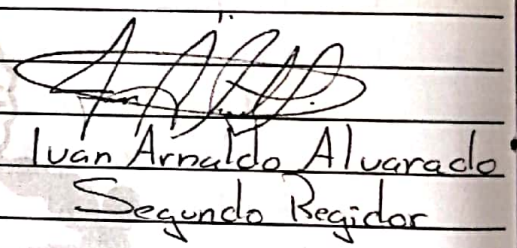 Ivan Arnaldo Alvarado
Segundo Regidor